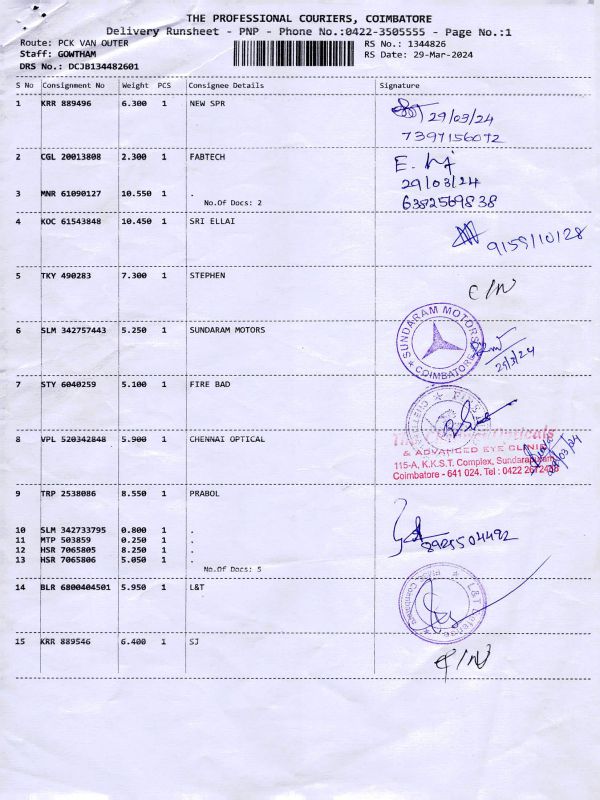 THE PROFESSIONAL COURIERS, COIMBATORE
Delivery Runsheet - PNP - Phone No.:0422-3505555 - Page No.:1
Route: PCK VAN OUTER RS No.: 1344826
Staff: GOWTHAM RS Date: 29-Mar-2024
DRS No.: DCJB134482601
S No Consignment No Weight PCS Consignee Details Signature
1 KRR 889496 6.300 1 NEW SPR
29/03/24
7397156072
2 CGL 20013808 2.300 1 FABTECH
29/03/24
3 MNR 61090127 10.550 1 .
No.Of Docs: 2 6382569838
4 KOC 61543848 10.450 1 SRI ELLAI
9159110128
5 TKY 490283 7.300 1 STEPHEN
C/N
6 SLM 342757443 5.250 1 SUNDARAM MOTORS
SUNDARAM MOTORS
COIMBATORE
29/3/24
7 STY 6040259 5.100 1 FIRE BAD
8 VPL 520342848 5.900 1 CHENNAI OPTICAL
& ADVANCED EYE CLINIC
115-A, K.K.S.T. Complex, Sundarapuram,
Coimbatore - 641 024. Tel : 0422 2672428
9 TRP 2538086 8.550 1 PRABOL
10 SLM 342733795 0.800 1 .
11 MTP 503859 0.250 1 .
12 HSR 7065805 8.250 1 .
13 HSR 7065806 5.050 1 .
No.Of Docs: 5
8925504492
14 BLR 6800404501 5.950 1 L&T
L&T Defense
15 KRR 889546 6.400 1 SJ
C/N